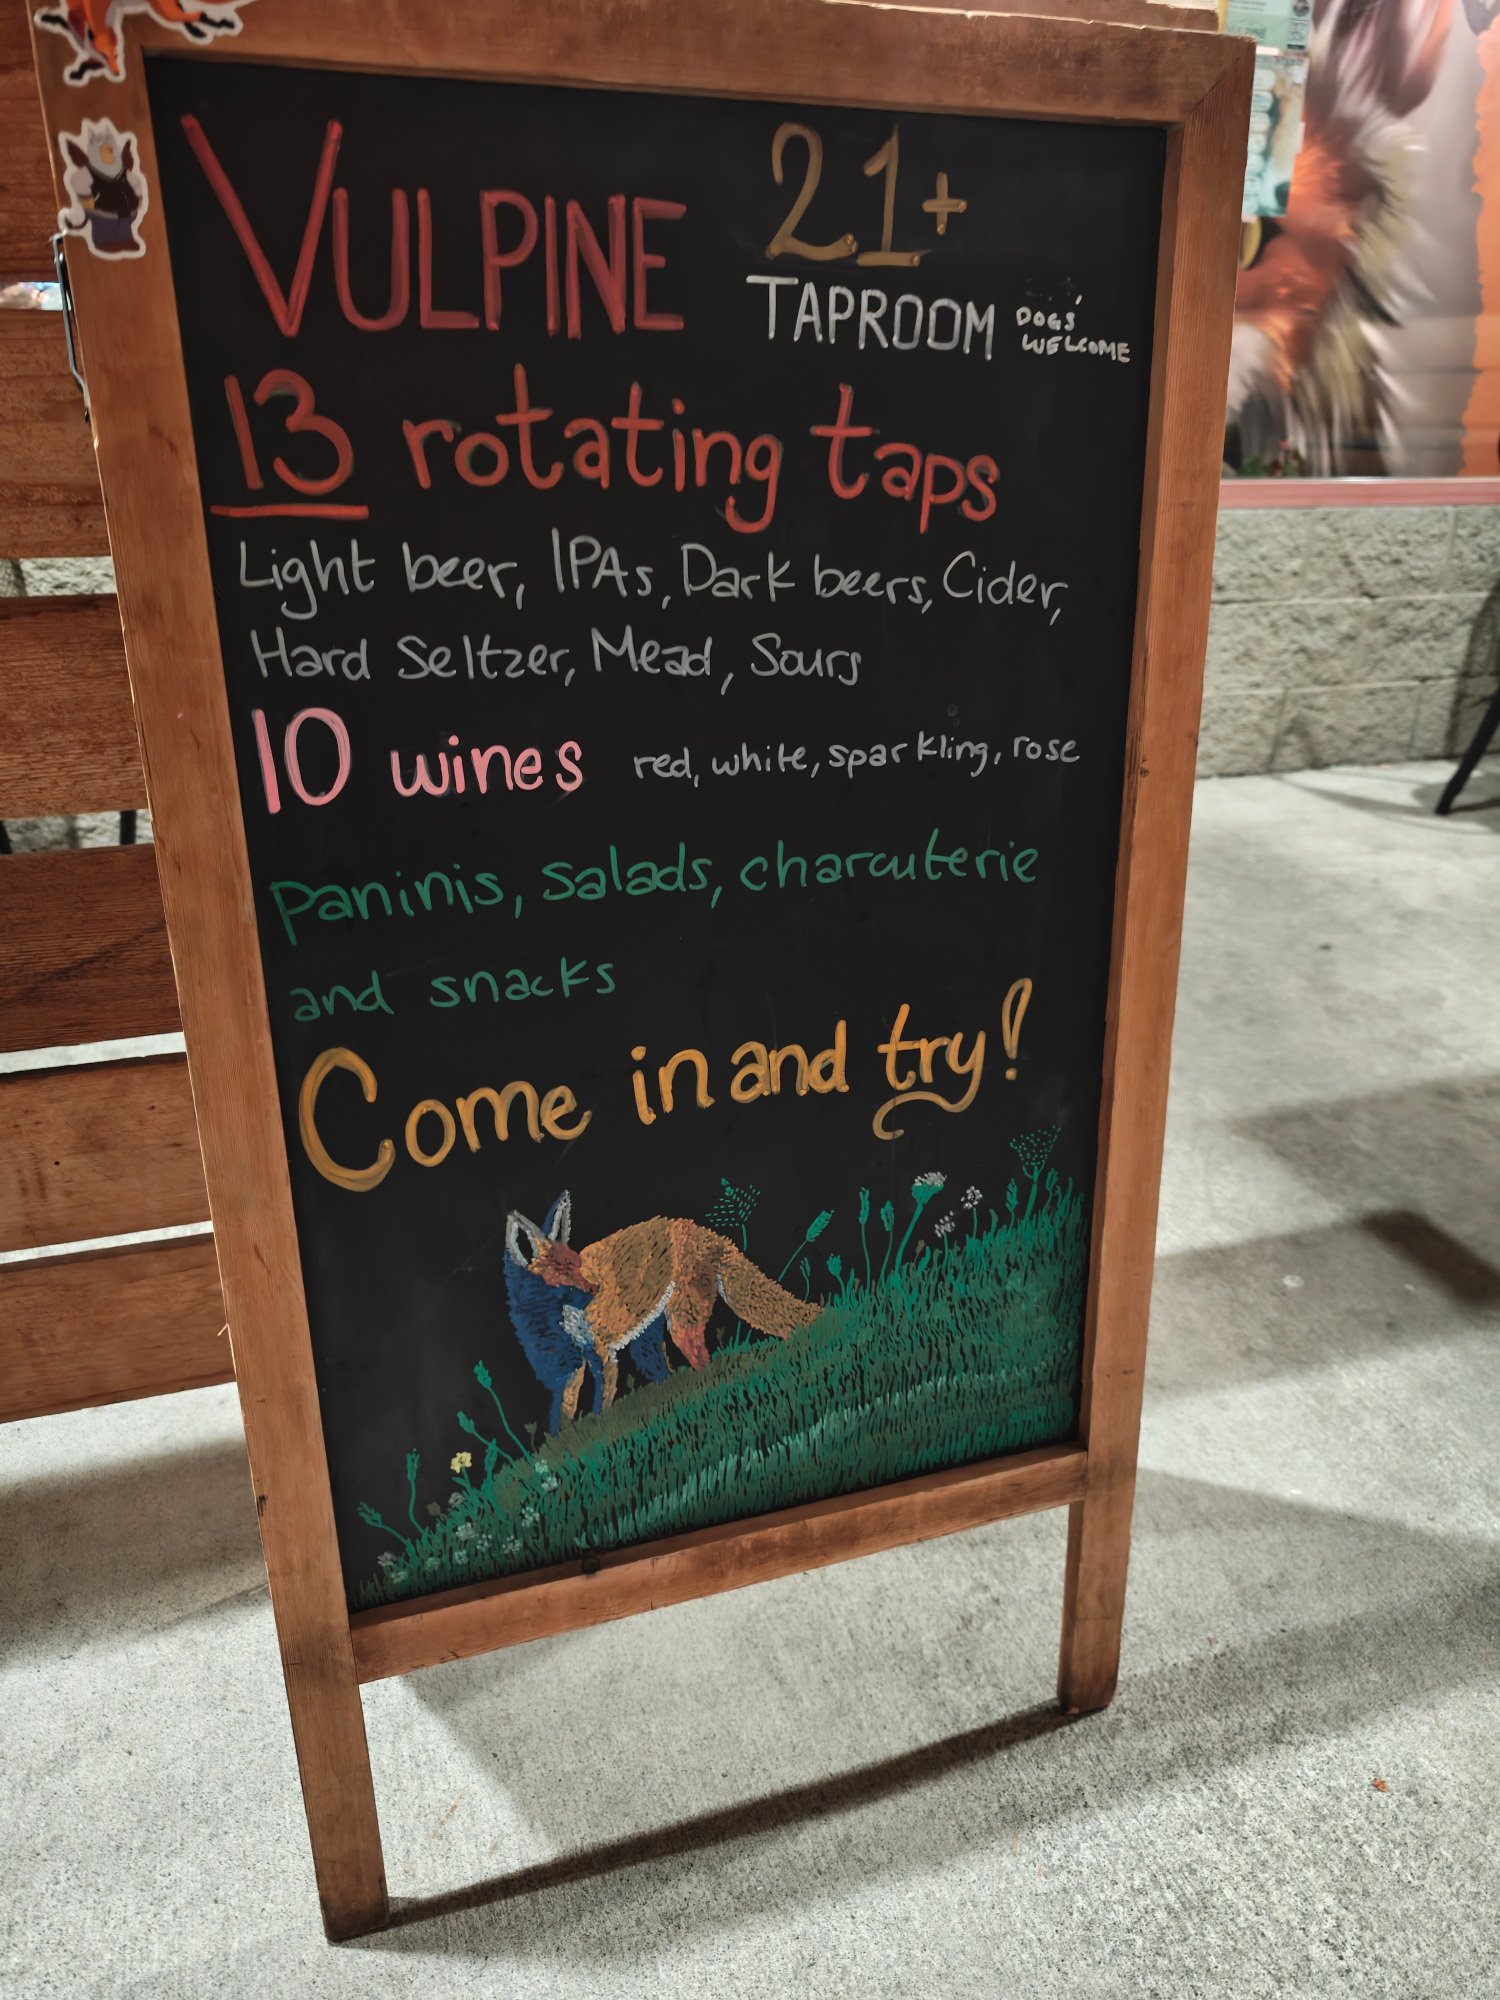 VULPINE
21+
TAPROOM
DOGS
WELCOME
13 rotating taps
Light beer, IPAs, Dark beers, Cider,
Hard Seltzer, Mead, Sours
10 wines red, white, sparkling, rose
Paninis, Salads, charcuterie
and snacks
Come in and try!